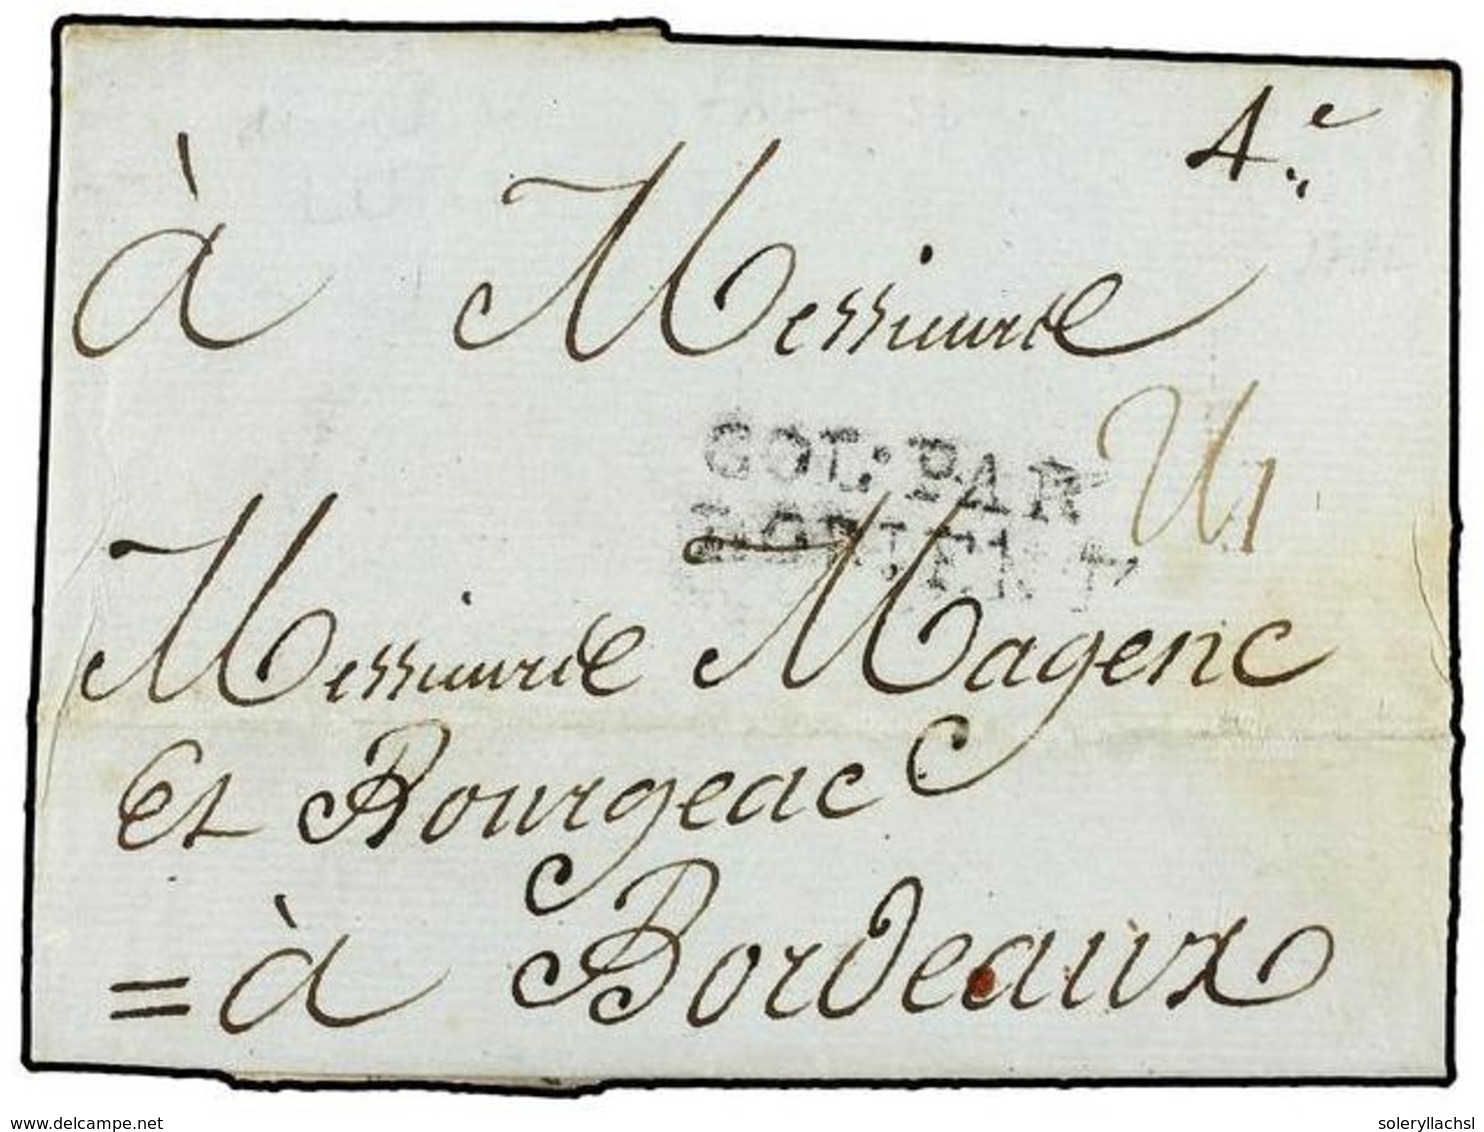 4.e
à Messieurs
COL. PAR
LORIENT
Messieurs Mageric
Et Bourgeac
= à Bordeaux
www.delcampe.net
soleryllachsl